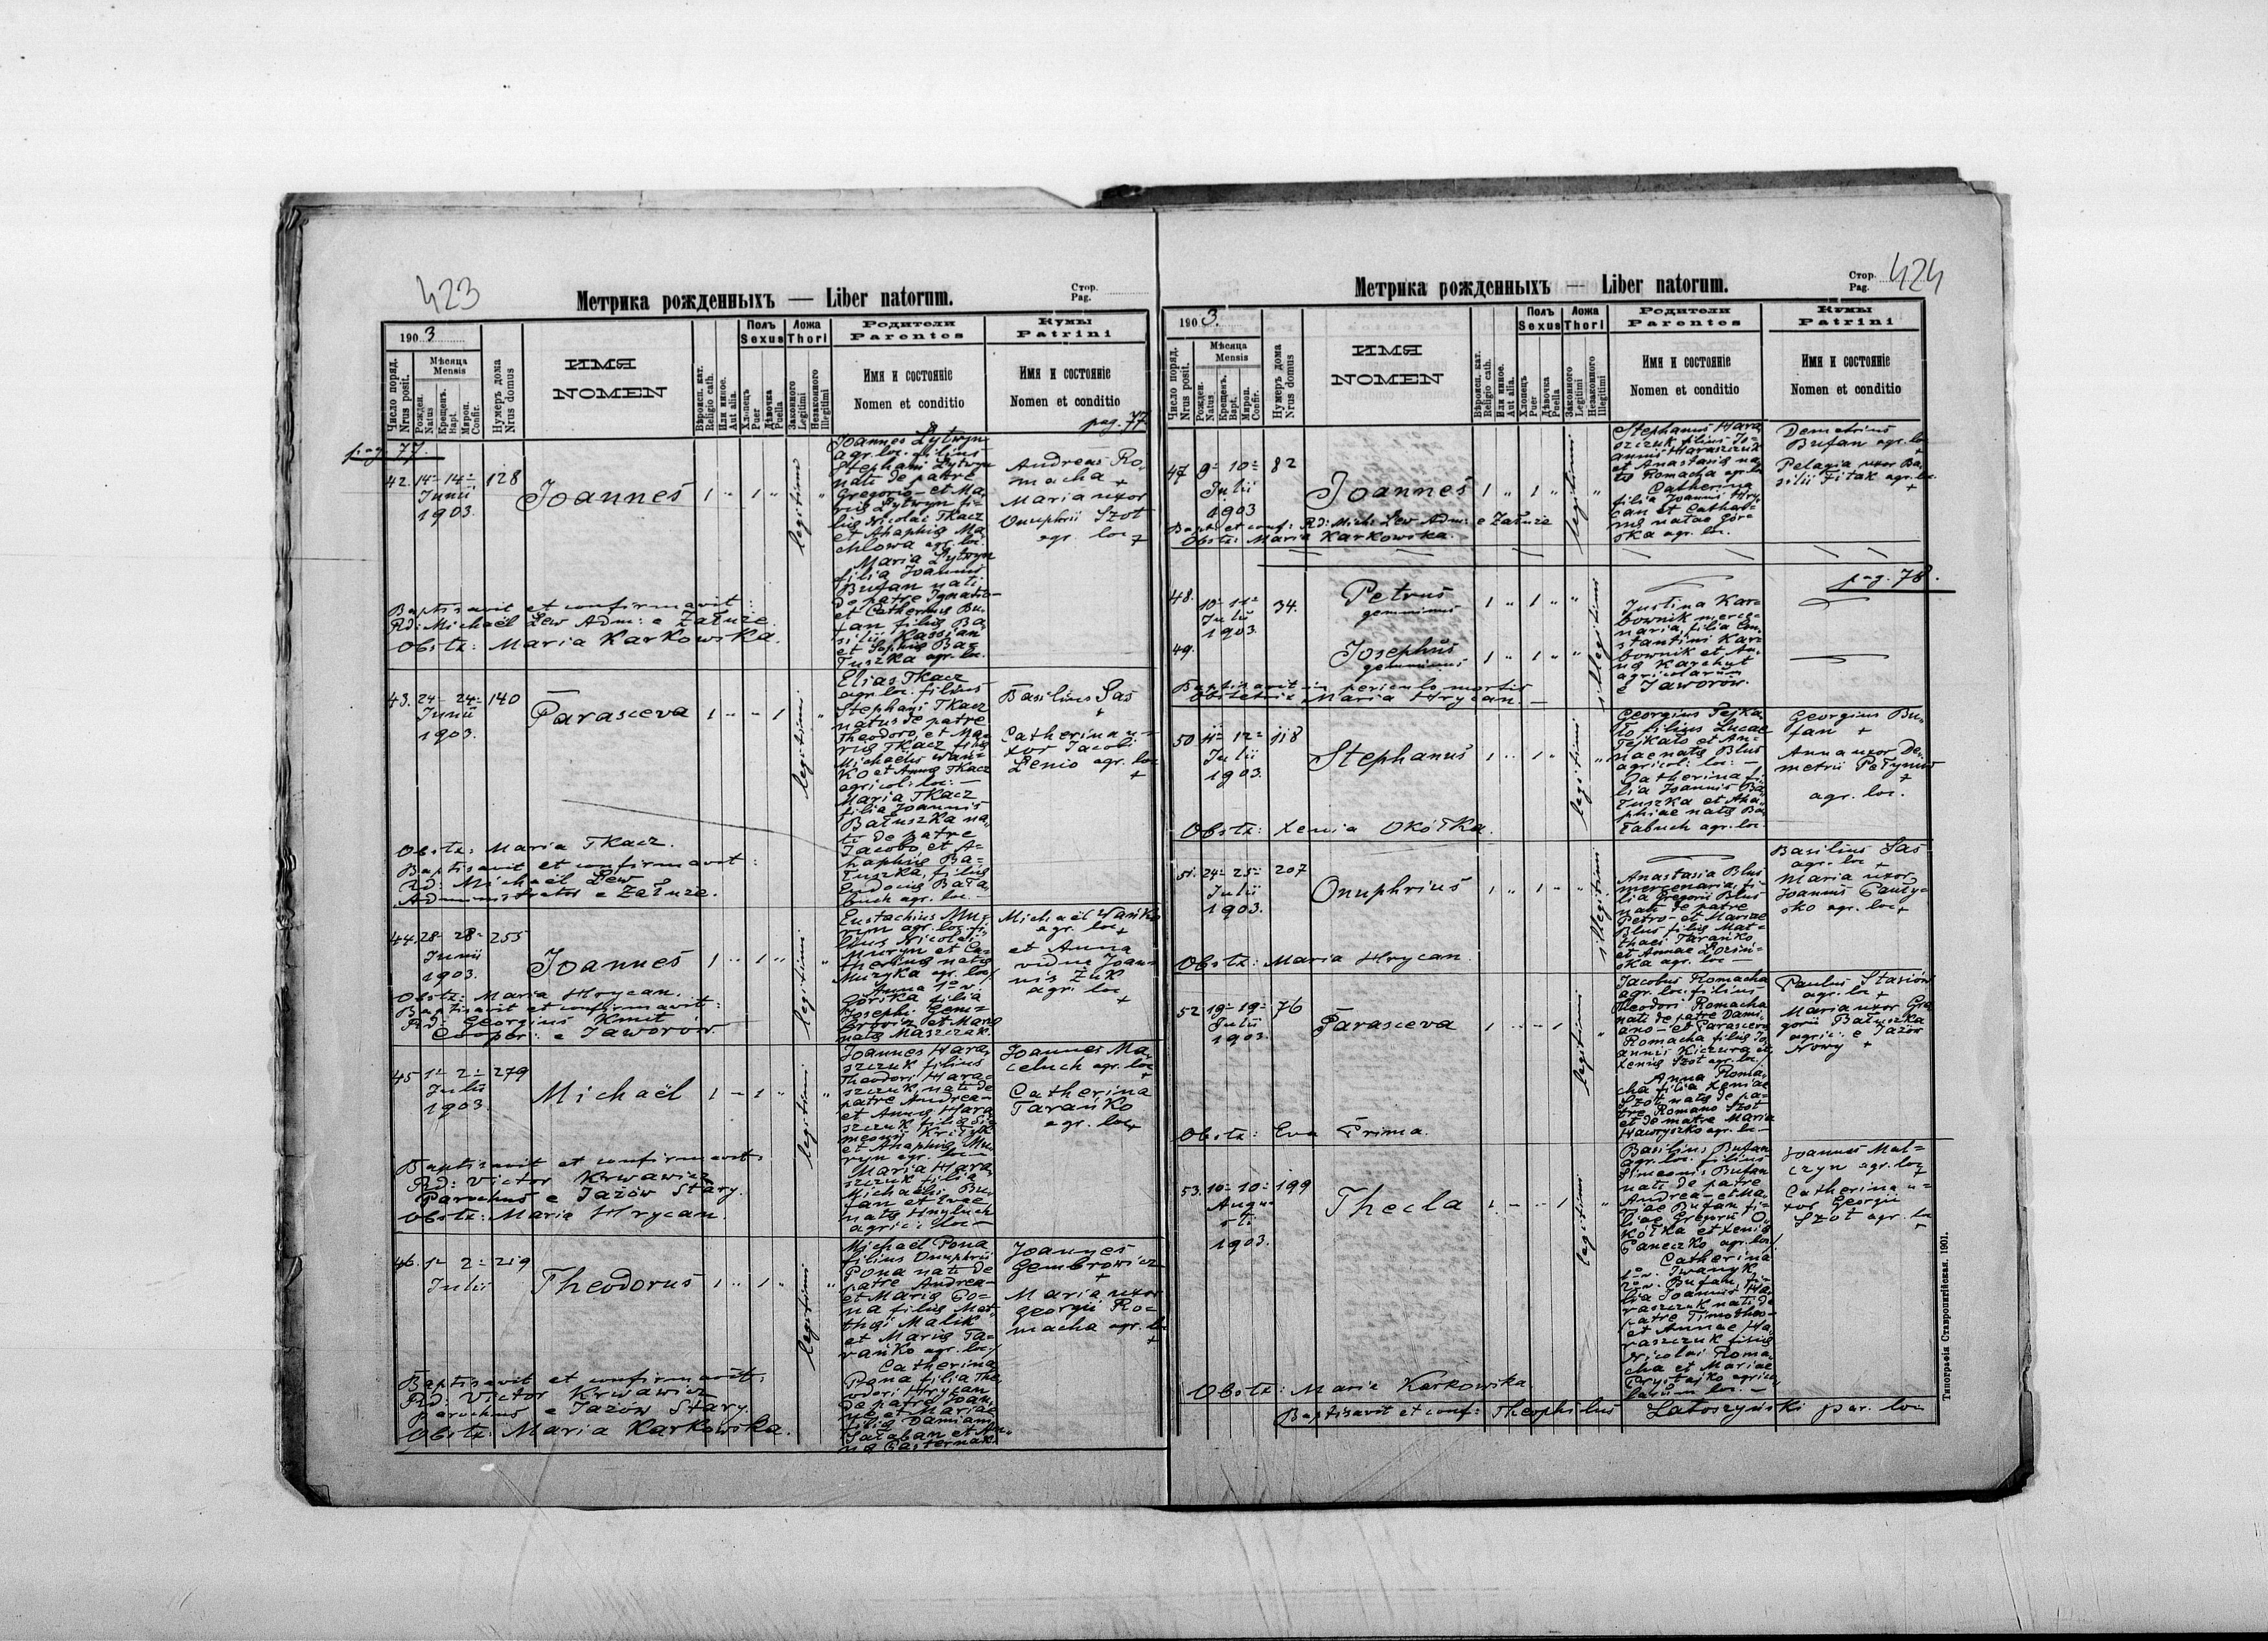 423
Метрика рожденныхъ — Liber natorum.
Стор.
Pag.
1903
Число поряд.
Nrus posit.
Мѣсяца
Mensis
Рожден.
Natus
Крещенъ.
Bapt.
Мѵроп.
Confir.
Нумеръ дома
Nrus domus
ИМЯ
NOMEN
Вѣроисп. кат.
Religio cath.
Или иное.
Aut alia.
Полъ
Sexus
Хлопецъ
Puer
Дѣвочка
Puella
Ложа
Thori
Законного
Legitimi
Незаконного
Illegitimi
Родители
Parentes
Имя и состояніе
Nomen et conditio
Кумы
Patrini
Имя и состояніе
Nomen et conditio
pag. 77
pag. 77.
42. 14 14 128
Junii
1903.
Joannes
1 " 1 "
legitimi
Joannes Lytwyn
agr. loc. filius
Stephani Lytwyn
nati de patre
Gregorio et Ma-
riae Lytwyn fi-
liae Nicolai Tkacz
et Ahaphiae Ma-
chlowa agr. loc.
Maria Lytwyn
filia Joannis
Bufan nati
de patre Ignatio
et Catherinae Bu-
fan filiae Ba-
silii Kassian
et Sophiae Ba-
łuszka agr. loc.
Andreas Ro-
macha +
Maria uxor
Onuphrii Szot
agr. loc. +
Baptisavit et confirmavit:
Rd: Michaël Lew Adm: e Załuże.
Obstz: Maria Karkowska.
43. 24 24 140
Junii
1903.
Parasceva
1 - - 1
legitimi
Elias Tkacz
agr. loc. filius
Stephani Tkacz
natus de patre
Theodoro, et Ma-
riae Tkacz filiae
Michaelis Wań-
ko et Annae Tkacz
agricol. loc. —
Maria Tkacz
filia Joannis
Bałuszka na-
ti de patre
Jacobo, et A-
haphiae Ba-
łuszka, filiae
Eudociae Bała-
buch agr. loc. —
Basilius Sas
+
Catherina u-
xor Jacobi
Lenio agr. loc
+
Obstz: Maria Tkacz.
Baptisavit et confirmavit:
Rd: Michaël Lew
Administrator e Załuże.
44. 28 28 255
Junii
1903.
Joannes
1 " 1 "
legitimi
Eustachius Mu-
ryn agr. loc. fi-
lius Nicolai
Muryn et Ca-
therinae natae
Muzyka agr. loc./
Anna 1o v.
Górska filia
Joseph. Gem-
browicz et Mariae
natae Maszczak.
Michaël Wańko
agr. loc +
et Anna
vidua Joan-
nis Żuk
agr. loc
+
Obstz: Maria Hrycan.
Baptisavit et confirmavit:
Rd: Georgius Kmit
Cooper: e Jaworów
45 1 2 279
Julii
1903.
Michaël
1 - 1 "
legitimi
Joannes Hara-
szczuk filius
Theodori Hara-
szczuk, nati de
patre Andrea
et Annae Hara-
szczuk filiae Si-
meonis
et Ahaphiae Mu-
ryn agr. loc —
Maria Hara-
szczuk filia
Michaëlis Bu-
fan et Evae
natae Hnyluch
agric: loc —
Joannes Ma-
celuch agr. loc
+
Catherina
Tarańko
agr. loc+
Baptisavit et confirmavit:
Rd: Victor Krwawicz
Parochus e Jażów Stary.
Obstz: Maria Hrycan.
46. 1 2 219
Julii
Theodorus
1 " 1 "
legitimi
Michaël Pona
filius Onuphrii
Pona nati de
patre Andrea
et Mariae Po-
na filiae Mat-
thaei Malik
et Mariae Ta-
rańko agr. loc./
Catherina
Pona filia The-
odori Hrycan
de patre Joan-
ne et Mariae
filiae Damiani
Sałaban et An-
nae Pasternak.
Joannes
Gembrowicz
+
Maria uxor
Georgii Ro-
macha agr. loc
+
Baptisavit et confirmavit:
Rd: Victor Krwawicz
parochus e Jażów Stary.
Obstz: Maria Karkowska.
424
Метрика рожденныхъ — Liber natorum.
Стор.
Pag.
1903.
Число поряд.
Nrus posit.
Мѣсяца
Mensis
Рожден.
Natus
Крещенъ.
Bapt.
Мѵроп.
Confir.
Нумеръ дома
Nrus domus
ИМЯ
NOMEN
Вѣроисп. кат.
Religio cath.
Или иное.
Aut alia.
Полъ
Sexus
Хлопецъ
Puer
Дѣвочка
Puella
Ложа
Thori
Законного
Legitimi
Незаконного
Illegitimi
Родители
Parentes
Имя и состояніе
Nomen et conditio
Кумы
Patrini
Имя и состояніе
Nomen et conditio
47 9 10 82
Julii
1903
Joannes
1 " 1 "
legitimi
Stephanus Hara-
szczuk filius Jo-
annis Haraszczuk
et Anastasiae na-
tae Romacha agr. loc
Catherina
filia Joannis Hry-
can et Catheri-
nae natae Gór-
ska agr. loc.
Demetrius
Bufan agr. loc
+
Pelagia uxor Ba-
silii Fitak agr. loc.
+
Bapt. et conf: Rd: Mich: Lew Adm: e Załuże
Obstz: Maria Karkowska.
pag. 78.
48. 10 11 34.
Julii
1903.
Petrus
geminus
1 " 1 " "
illegitimi
49.
Josephus
geminus
1 " 1 " "
Justina Kar-
bownik merce-
naria, filia Con-
stantini Kar-
bownik et An-
nae Kaychut
agricolarum
e Jaworów.
Baptisavit in periculo mortis
obstetrix Maria Hrycan. —
50 11 12 118
Julii
1903.
Stephanus
1 " 1 "
legitimi
Georgius Pejka-
ło filius Lucae
Pejkało et An-
nae natae Blus
agricol: loc: —
Catherina fi-
lia Joannis Ba-
łuszka et Aha-
phiae natae Ba-
łabuch agr. loc.
Georgius Bu-
fan +
Anna uxor De-
metrii Pełyniw
+
agr. loc.
Obstz: Xenia Okółka.
51. 24 25 207
Julii
1903.
Onuphrius
1 " 1 -
illegitimi
Anastasia Blus
mercenaria, fi-
lia Gregorii Blus
nati de patre
Petro et Mariae
Blus filiae Mat-
thaei Tarańko
et Annae Łoziń-
ska agr. loc —
Basilius Sas
agr. loc +
Maria uxor
Joannis
agr. loc +
Obstz: Maria Hrycan.
52 19 19 76
Julii
1903.
Parasceva
1 " - 1
legitimi
Jacobus Romacha
agr. loc. filius
Theodori Romacha
nati de patre Dami-
ano et Parascevae
Romacha filiae Jo-
annis Kiczura et
Xeniae Szot agr. loc./
Anna Roma-
cha filia Xeniae
Szot natae de pa-
tre Romano Szot
et de matre Maria
Hawryszko agr. loc. —
Paulus Stasiów
agr. loc +
Maria uxor Gre-
gorii Bałuszka
agric: e Jażów
Nowy +
Obstz: Eva Prima.
53. 10 10 199
Augu-
sti
1903.
Thecla
1 - - 1
legitimi
Basilius Bufan
agr. loc. filius
Simeonis Bufan
nati de patre
Andrea et Ma-
riae Bufan fi-
liae Gregorii O-
kółka et Xeniae
Paneczko agr. loc./
Catherina
1o v. Iwanyk,
2o v. Bufan, fi-
lia Joannis Ha-
raszczuk nati de
patre Timotheo
et Annae Ha-
raszczuk filiae
Nicolai Roma-
cha et Mariae
Prystajko agrico-
larum loc. —
Joannes Mal-
czyn agr. loc
+
Catherina u-
xor Georgii
Szot agr. loc
+
Obstz: Maria Karkowska.
Baptisavit et conf: Theophilus Łatoszyński par. loc
Типографія Ставропигійская. 1901.